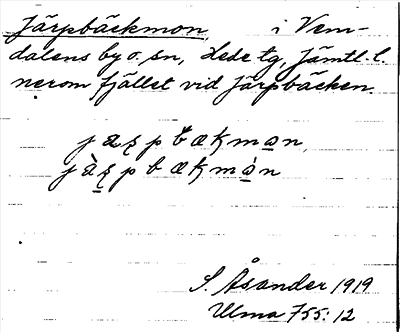 Järpbäckmon, i Vem-
dalens by o. sn, Hede tg, Jämtl. l.
nerom fjället vid Järpbäcken.
jæʂp bækmon,
jæ̀ʂp bækmòn
S. Åsander 1919
Ulma 755:12